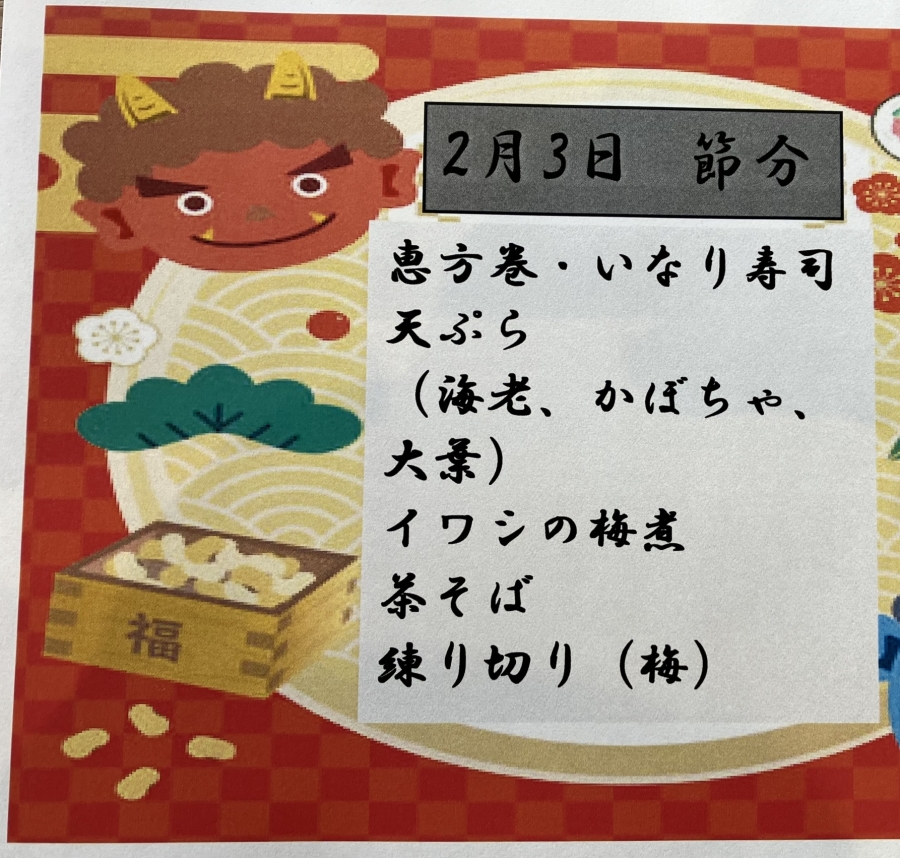 2月3日　節分
恵方巻・いなり寿司
天ぷら
（海老、かぼちゃ、
大葉）
イワシの梅煮
茶そば
練り切り（梅）
福